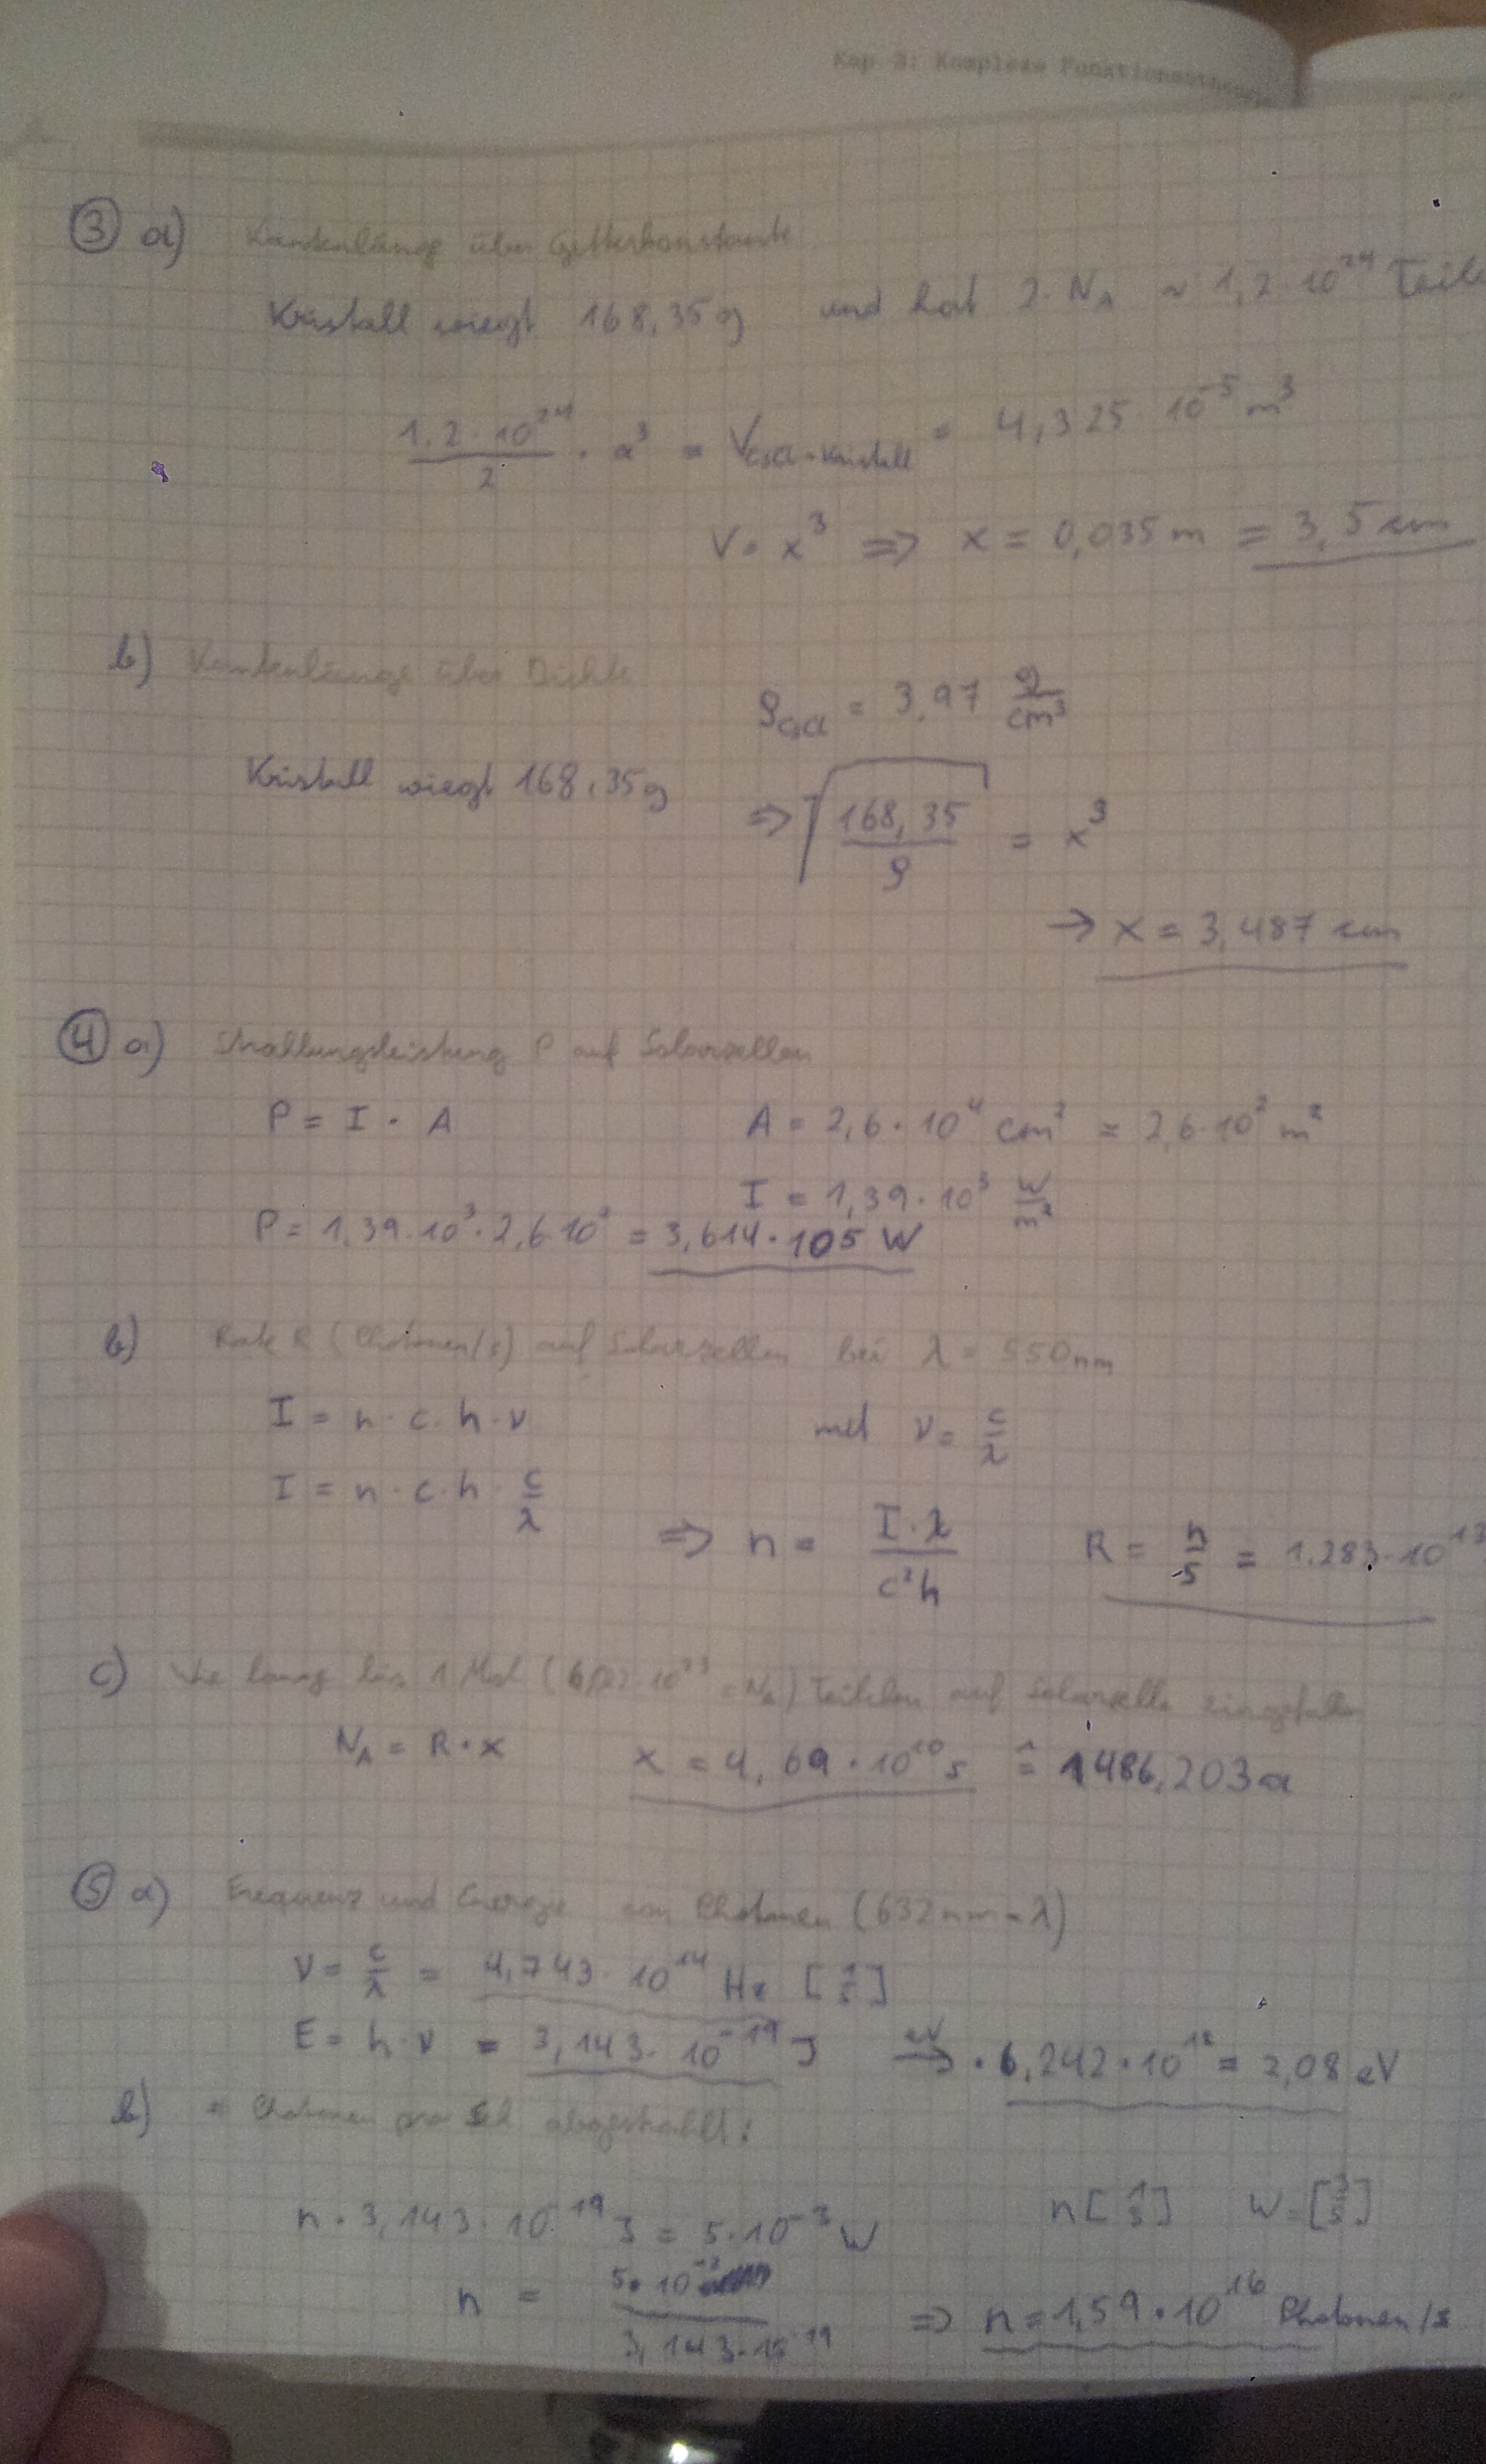 Kap 3: Komplexe Funktionentheorie
③ a) Kantenlänge über Gitterkonstante
Kristall wiegt 168,35g und hat 2·N_A ~ 1,2·10^24 Teile
1,2·10^24 / 2 · a^3 = V_CsCl-Kristall = 4,325·10^-5 m^3
V = x^3 ⇒ x = 0,035m = 3,5 cm
b) Kantenlänge über Dichte
ρ_CsCl = 3,97 g/cm^3
Kristall wiegt 168,35g ⇒ √(168,35/ρ) = x^3
→ x = 3,487 cm
④ a) Strahlungsleistung P auf Solarzellen
P = I · A A = 2,6·10^4 cm^2 = 2,6·10^2 m^2
I = 1,39·10^3 W/m^2
P = 1,39·10^3·2,6·10^2 = 3,614·105 W
b) Rate R (Photonen/s) auf Solarzellen bei λ = 550nm
I = n·c·h·ν mit ν = c/λ
I = n·c·h·c/λ
⇒ n = I·λ / c^2h R = n/s = 1.283·10^13
c) Wie lang bis 1 Mol (6,022·10^23 = N_A) Teilchen auf Solarzelle eingefallen
N_A = R·x x = 4,69·10^10 s ≙ 1486,203a
⑤ a) Frequenz und Energie von Photonen (632nm=λ)
ν = c/λ = 4,743·10^14 Hz [1/s]
E = h·ν = 3,143·10^-19 J eV→ ·6,242·10^18 = 2,08 eV
b) = Photonen pro sek abgestrahlt:
n·3,143·10^-19 J = 5·10^-3 W n[1/s] W=[J/s]
n = 5·10^-3 / 3,143·10^-19 ⇒ n = 1,59·10^16 Photonen/s